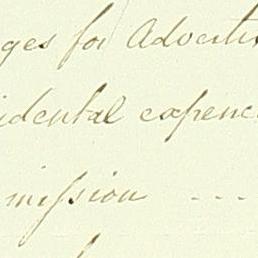 ges for Adverti
idental expence
mission ---